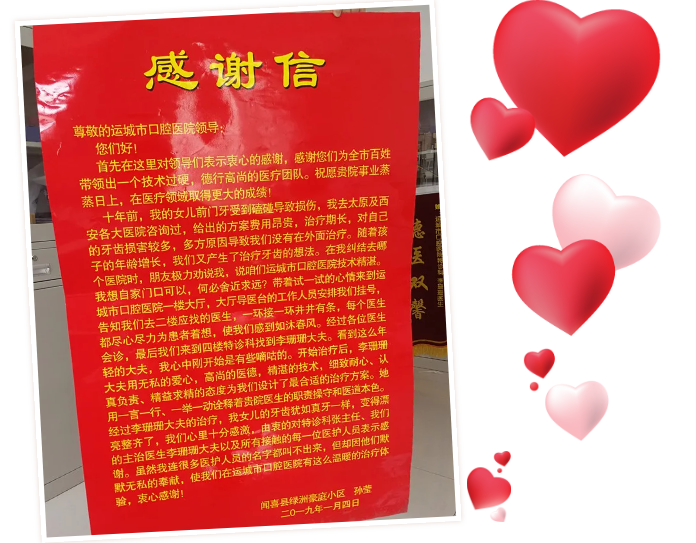 感谢信
尊敬的运城市口腔医院领导：
您们好！
首先在这里对领导们表示衷心的感谢，感谢您们为全市百姓
带领出一个技术过硬，德行高尚的医疗团队。祝愿贵院事业蒸
蒸日上，在医疗领域取得更大的成绩！
十年前，我的女儿前门牙受到磕碰导致损伤，我去太原及西
安各大医院咨询过，给出的方案费用昂贵，治疗期长，对自己
的牙齿损害较多，多方原因导致我们没有在外面治疗。随着孩
子的年龄增长，我们又产生了治疗牙齿的想法。在我纠结去哪
个医院时，朋友极力劝说我，说咱们运城市口腔医院技术精湛。
我想自家门口可以，何必舍近求远？带着试一试的心情来到运
城市口腔医院一楼大厅，大厅导医台的工作人员安排我们挂号，
告知我们去二楼应找的医生，一环接一环井井有条，每个医生
都尽心尽力为患者着想，使我们感到如沐春风。经过各位医生
会诊，最后我们来到四楼特诊科找到李珊珊大夫。看到这么年
轻的大夫，我心中刚开始是有些嘀咕的。开始治疗后，李珊珊
大夫用无私的爱心，高尚的医德，精湛的技术，细致耐心、认
真负责、精益求精的态度为我们设计了最合适的治疗方案。她
用一言一行、一举一动诠释着贵院医生的职责操守和医道本色。
经过李珊珊大夫的治疗，我女儿的牙齿犹如真牙一样，变得漂
亮整齐了，我们心里十分感激，由衷的对特诊科张主任、我们
的主治医生李珊珊大夫以及所有接触的每一位医护人员表示感
谢。虽然我连很多医护人员的名字都叫不出来，但却因他们默
默无私的奉献，使我们在运城市口腔医院有这么温暖的治疗体
验，衷心感谢！
闻喜县绿洲豪庭小区 孙莹
二〇一九年一月四日
德医双馨